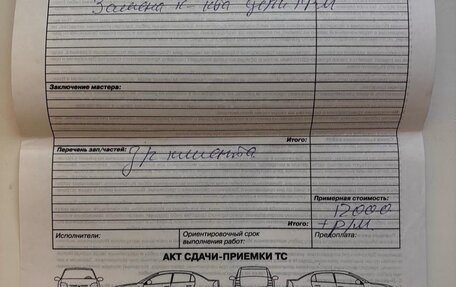 Замена к-ква цепи ГРМ
Заключение мастера:
Итого:
Перечень зап/частей:
др клиента
Примерная стоимость:
12000
+ГРМ
Итого:
Исполнители:
Ориентировочный срок
выполнения работ:
Предоплата:
АКТ СДАЧИ-ПРИЕМКИ ТС